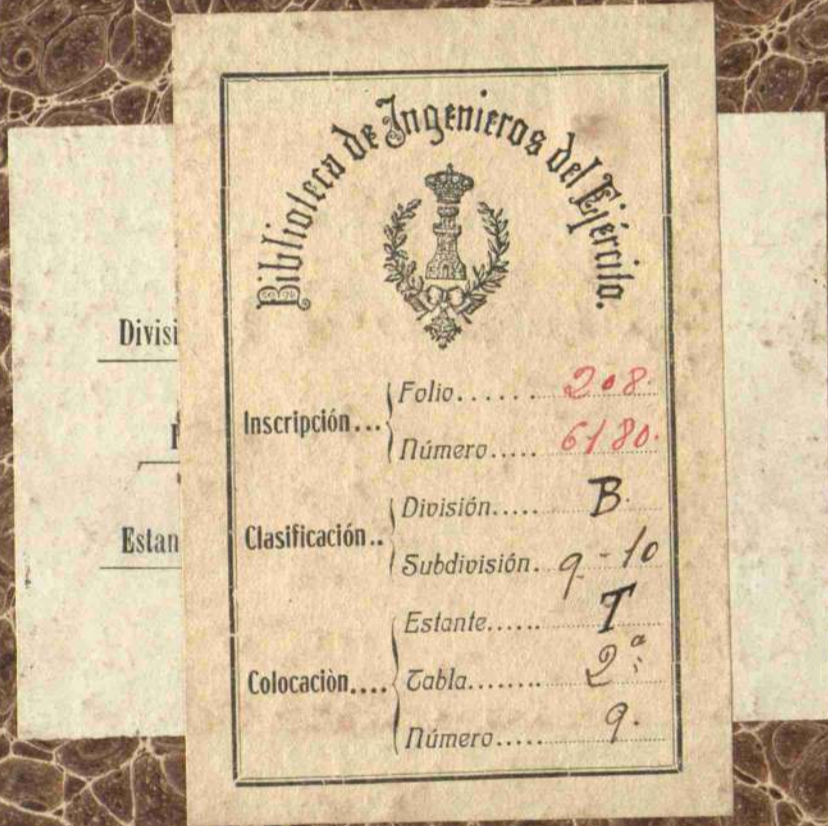 Biblioteca de Ingenieros del Ejército.
Divisi
Estan
Inscripción...
Folio...... 208.
Número..... 6180.
Clasificación..
División..... B.
Subdivisión. 9-10
Colocaciòn....
Estante...... T
Tabla........ 2ª
Número..... 9.